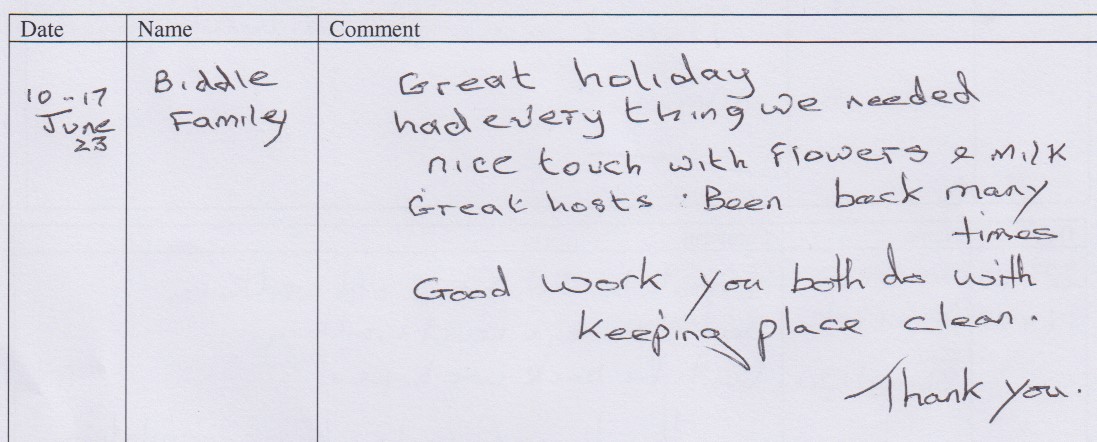 Date Name Comment
10-17
June
23
Biddle
Family
Great holiday
had every thing we needed
nice touch with Flowers & Milk
Great hosts : Been back many
times
Good work you both do with
keeping place clean.
Thank you.